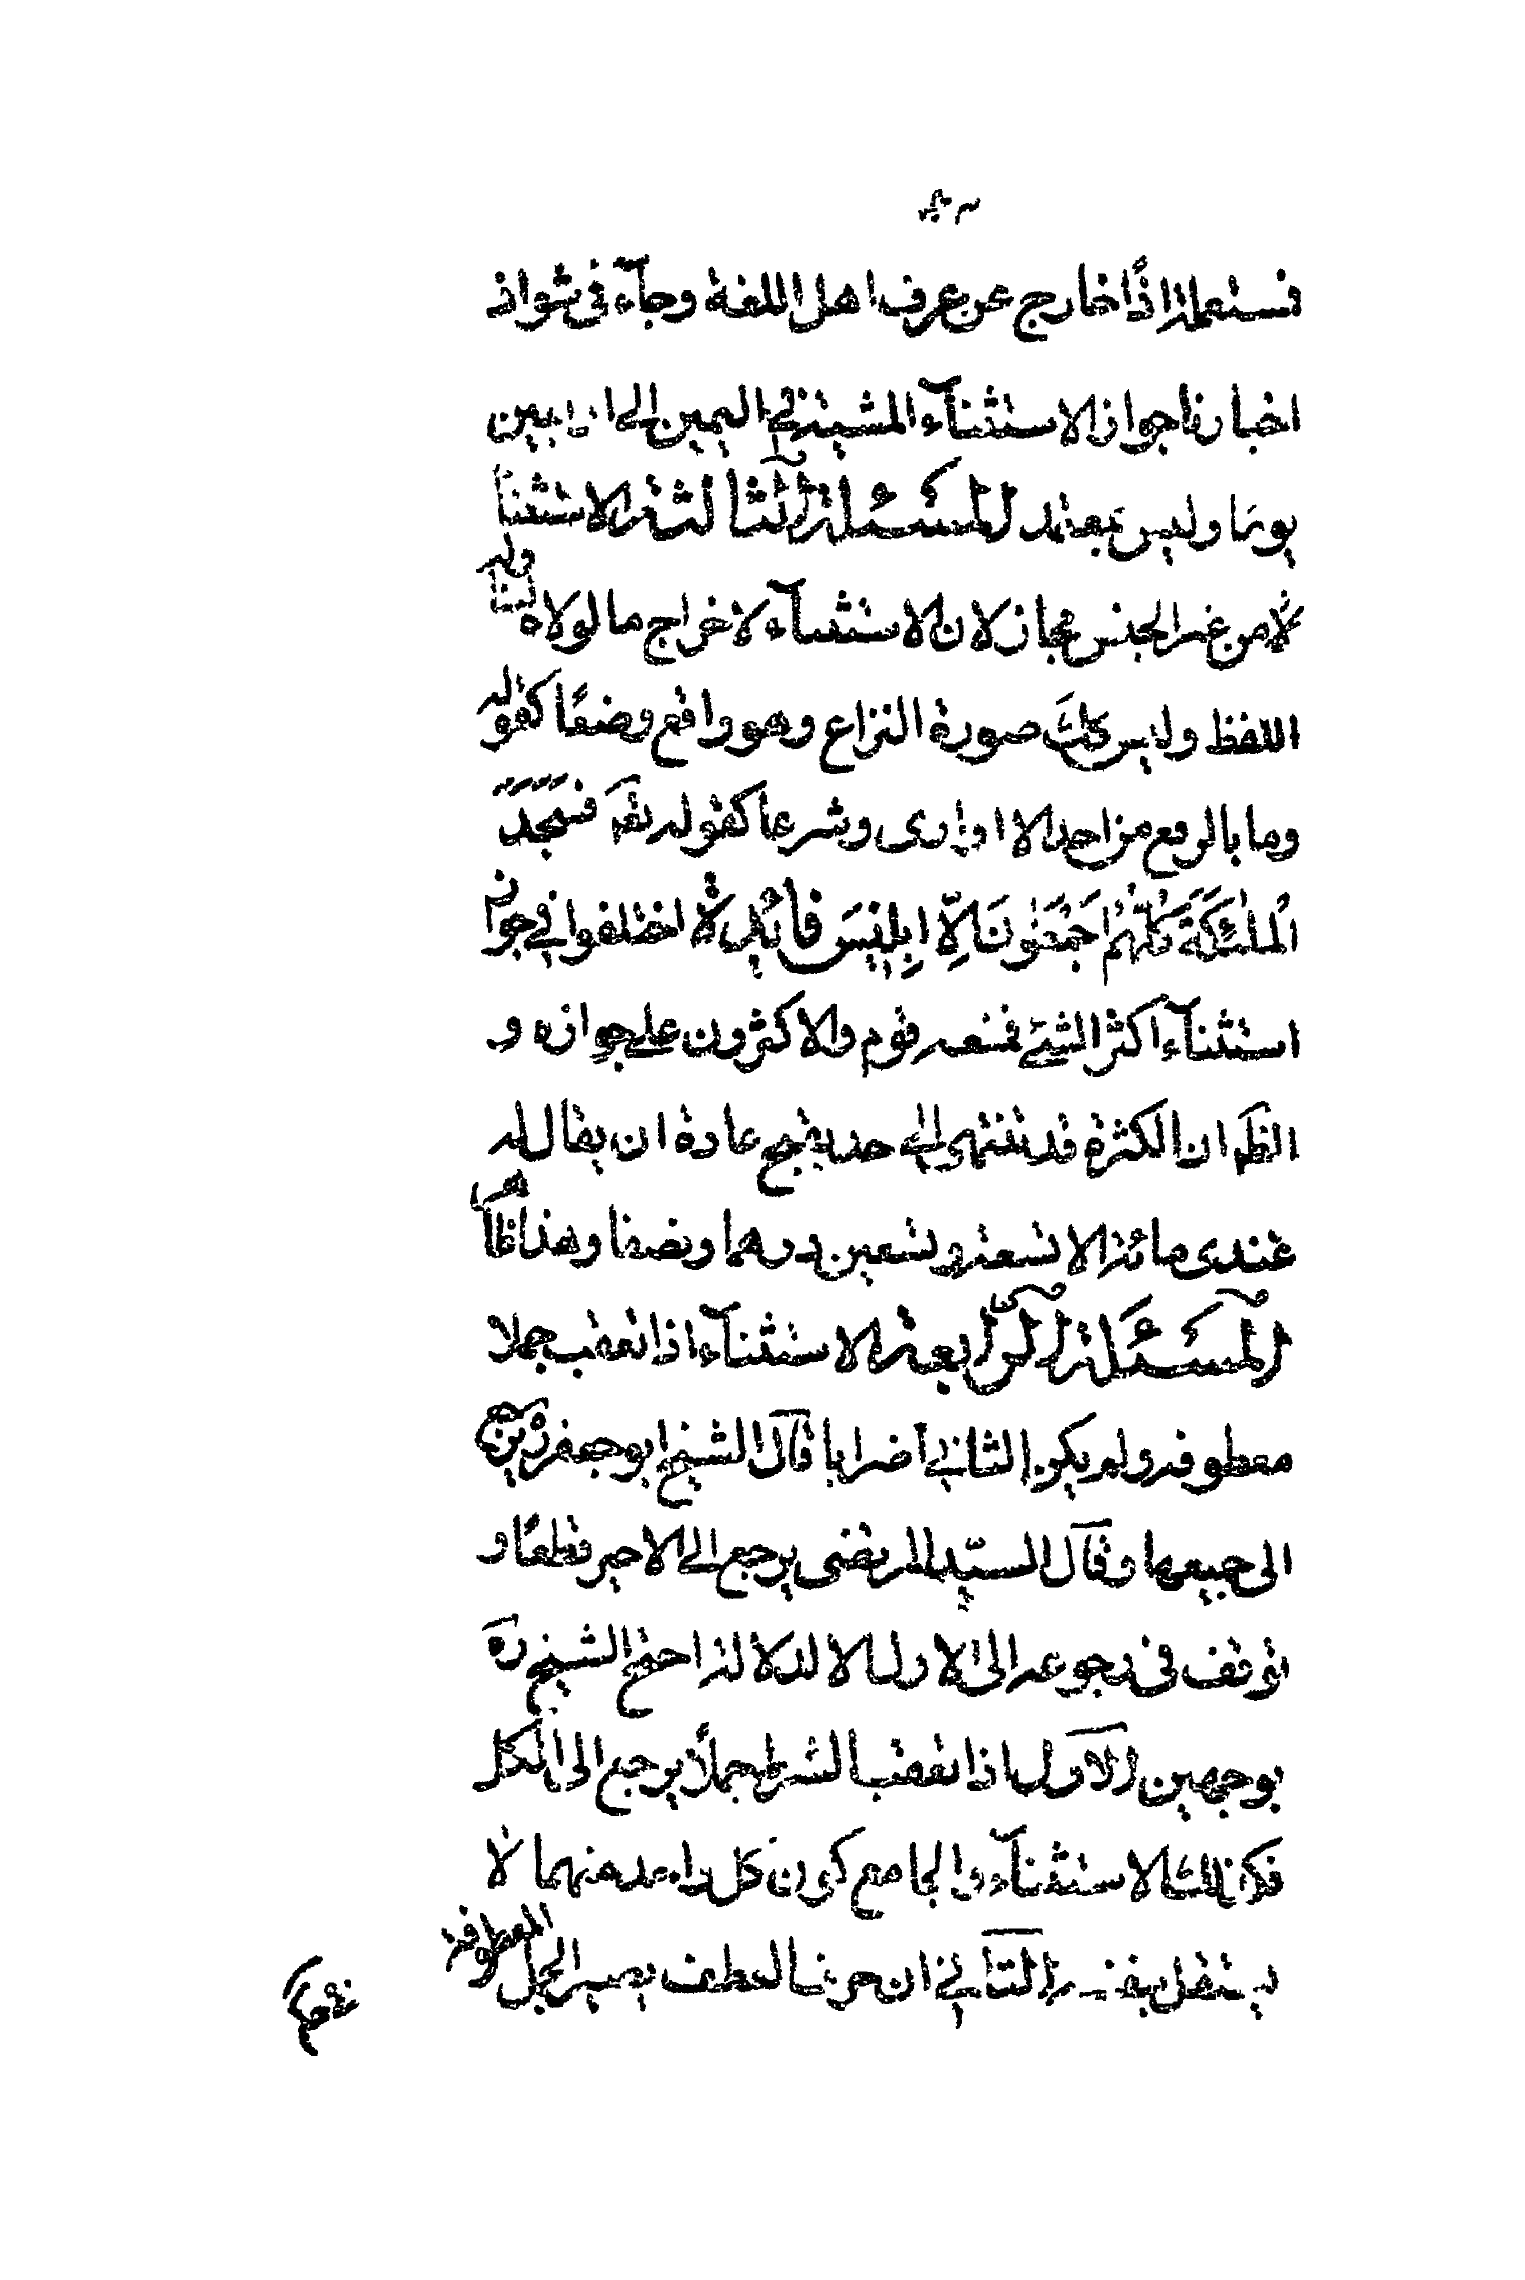 فمستعمله اذًا خارج عن عرف اهل اللغة وجآء فى شواذ
اخبارنا جواز الاستثنآء المشية في اليمين الى اربعين
يوما وليس بمعتمد المسئلة الثالثة الاستثنآ
من غير الجنس مجاز لان الاستثنآء لاخراج ما لولاه لتناوله
اللفظ وليس كك صورة النزاع وهو واقع وضعًا كقوله
وما بالربع من احد الا اوارى وشرعا كقوله تعَ فسَجَدَ
المَلٰئِكَةُ كُلُّهُمْ اَجْمَعُونَ اِلّاَ اِبلِيسَ فائدة اختلفوا في جواز
استثنآء اكثر الشئ فمنعه قوم والاكثرون على جوازه و
الظَ ان الكثرة قد تنتهى الى حد يقبح عادة ان يقال له
عندى مائة الا تسعة وتسعين درهما ونصفا وهذا
المسئلة الرابعة الاستثنآء اذا تعقب جملا
معطوفة ولم يكن الثانى اضرابا قال الشيخ ابو جعفر ره يرجع
الى جميعها وقال السيّد المرتضى يرجع الى الاخير قطعًا و
توقف فى رجوعه الى الاول الا لدلالة احتج الشيخ ره
بوجهين الاول اذا تعقب الشرط جملاً يرجع الى الكل
فكذلك الاستثنآء والجامع كون كل واحد منهما لا
يستقل بنفسه الثاني ان حرف العطف يصير الجمل المعطوفة